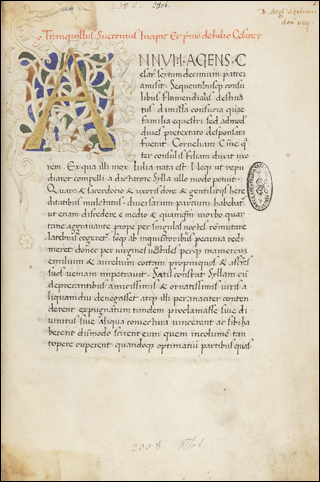 Tranquillus Suetonius Incipit Et primo de Iulio Cesare
ANNUM AGENS C
esar sextum decimum patrem
amisit. Sequentibusque consu
libus flamendialis destina
tus. dimissa cossutia que
familia equestri sed admodum
diues pretextato desponsata
fuerat. Corneliam Cinne quater
consulis filiam duxit uxo
rem. Ex qua illi mox Iulia nata est. Neque ut repu
diaret compelli a dictatore Sylla ullo modo potuit.
Quare & sacerdotio & uxoris dote & gentilitiis here
ditatibus multatus. diuersarum partium habebat
ut etiam discedere e medio & quamquam morbo quar
tane aggrauante prope per singulas noctes commutare
latebras cogeret. seque ab inquisitoribus pecunia redi
meret donec per uirgines uestales perque mamercum
emilium & aurelium cottam propinquos & affines
suos ueniam impetrauit. Satis constat Syllam cum
deprecantibus amicissimis & ornatissimis uiris a
liquamdiu denegasset atque illi pertinaciter conten
derent expugnatum tandem proclamasse siue di
uinitus siue aliqua coniectura uincerent ac sibi ha
berent dummodo scirent eum quem incolumem tan
topere cuperent quandoque optimatum partibus quas